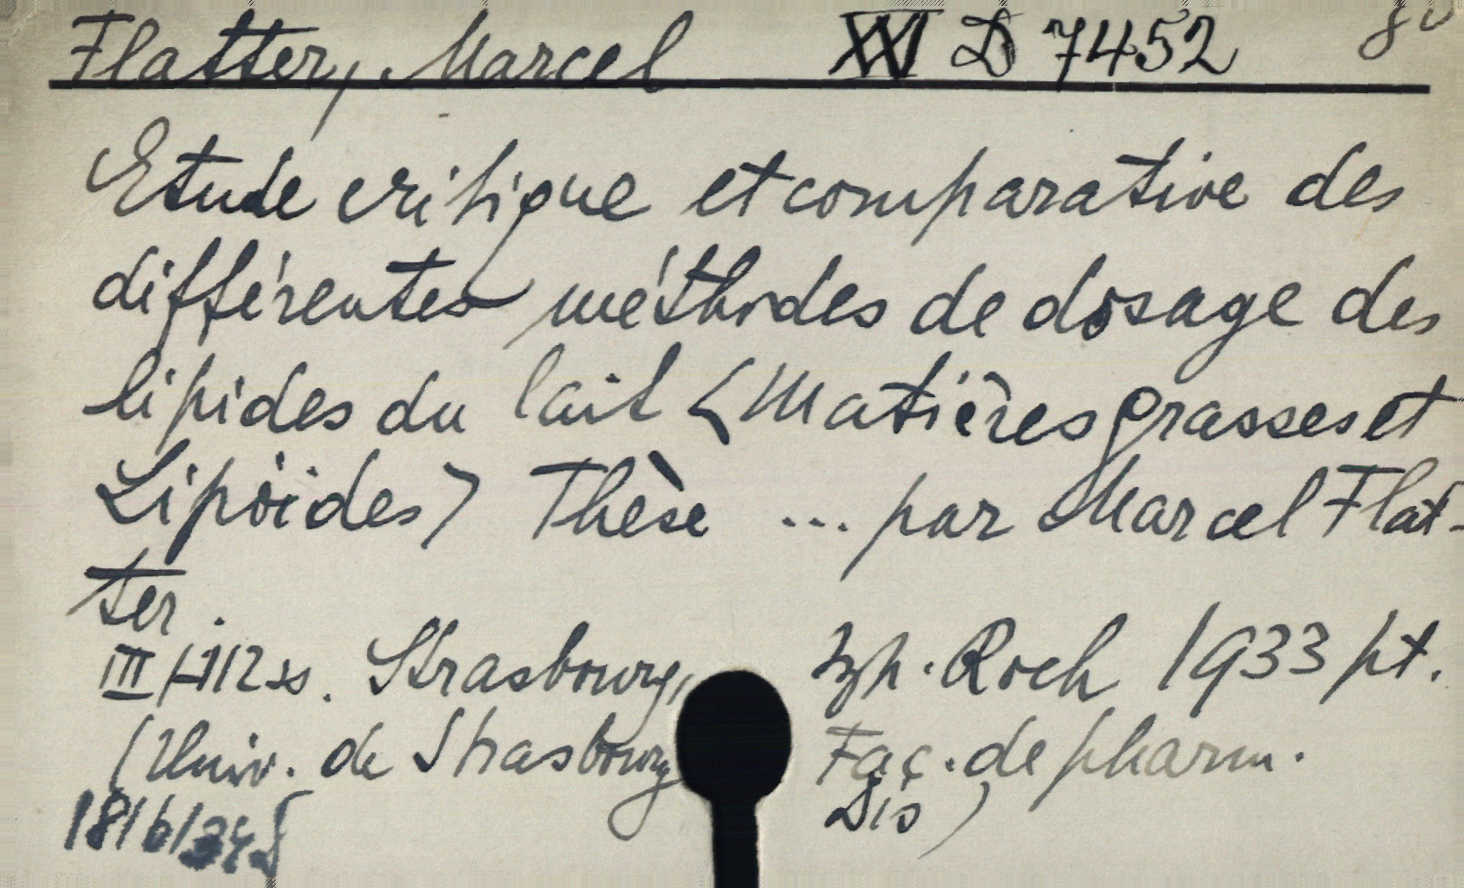 Flatter, Marcel XXI D 7452 80
Etude critique et comparative des
différentes méthodes de dosage des
lipides du lait <Matières grasses et
Lipoïdes> Thèse ... par Marcel Flat-
ter.
III + 112 ss. Strasbourg, Typ. Roch 1933 pt.
(Univ. de Strasbourg Fac. de pharm.
Dis)
18/6/34